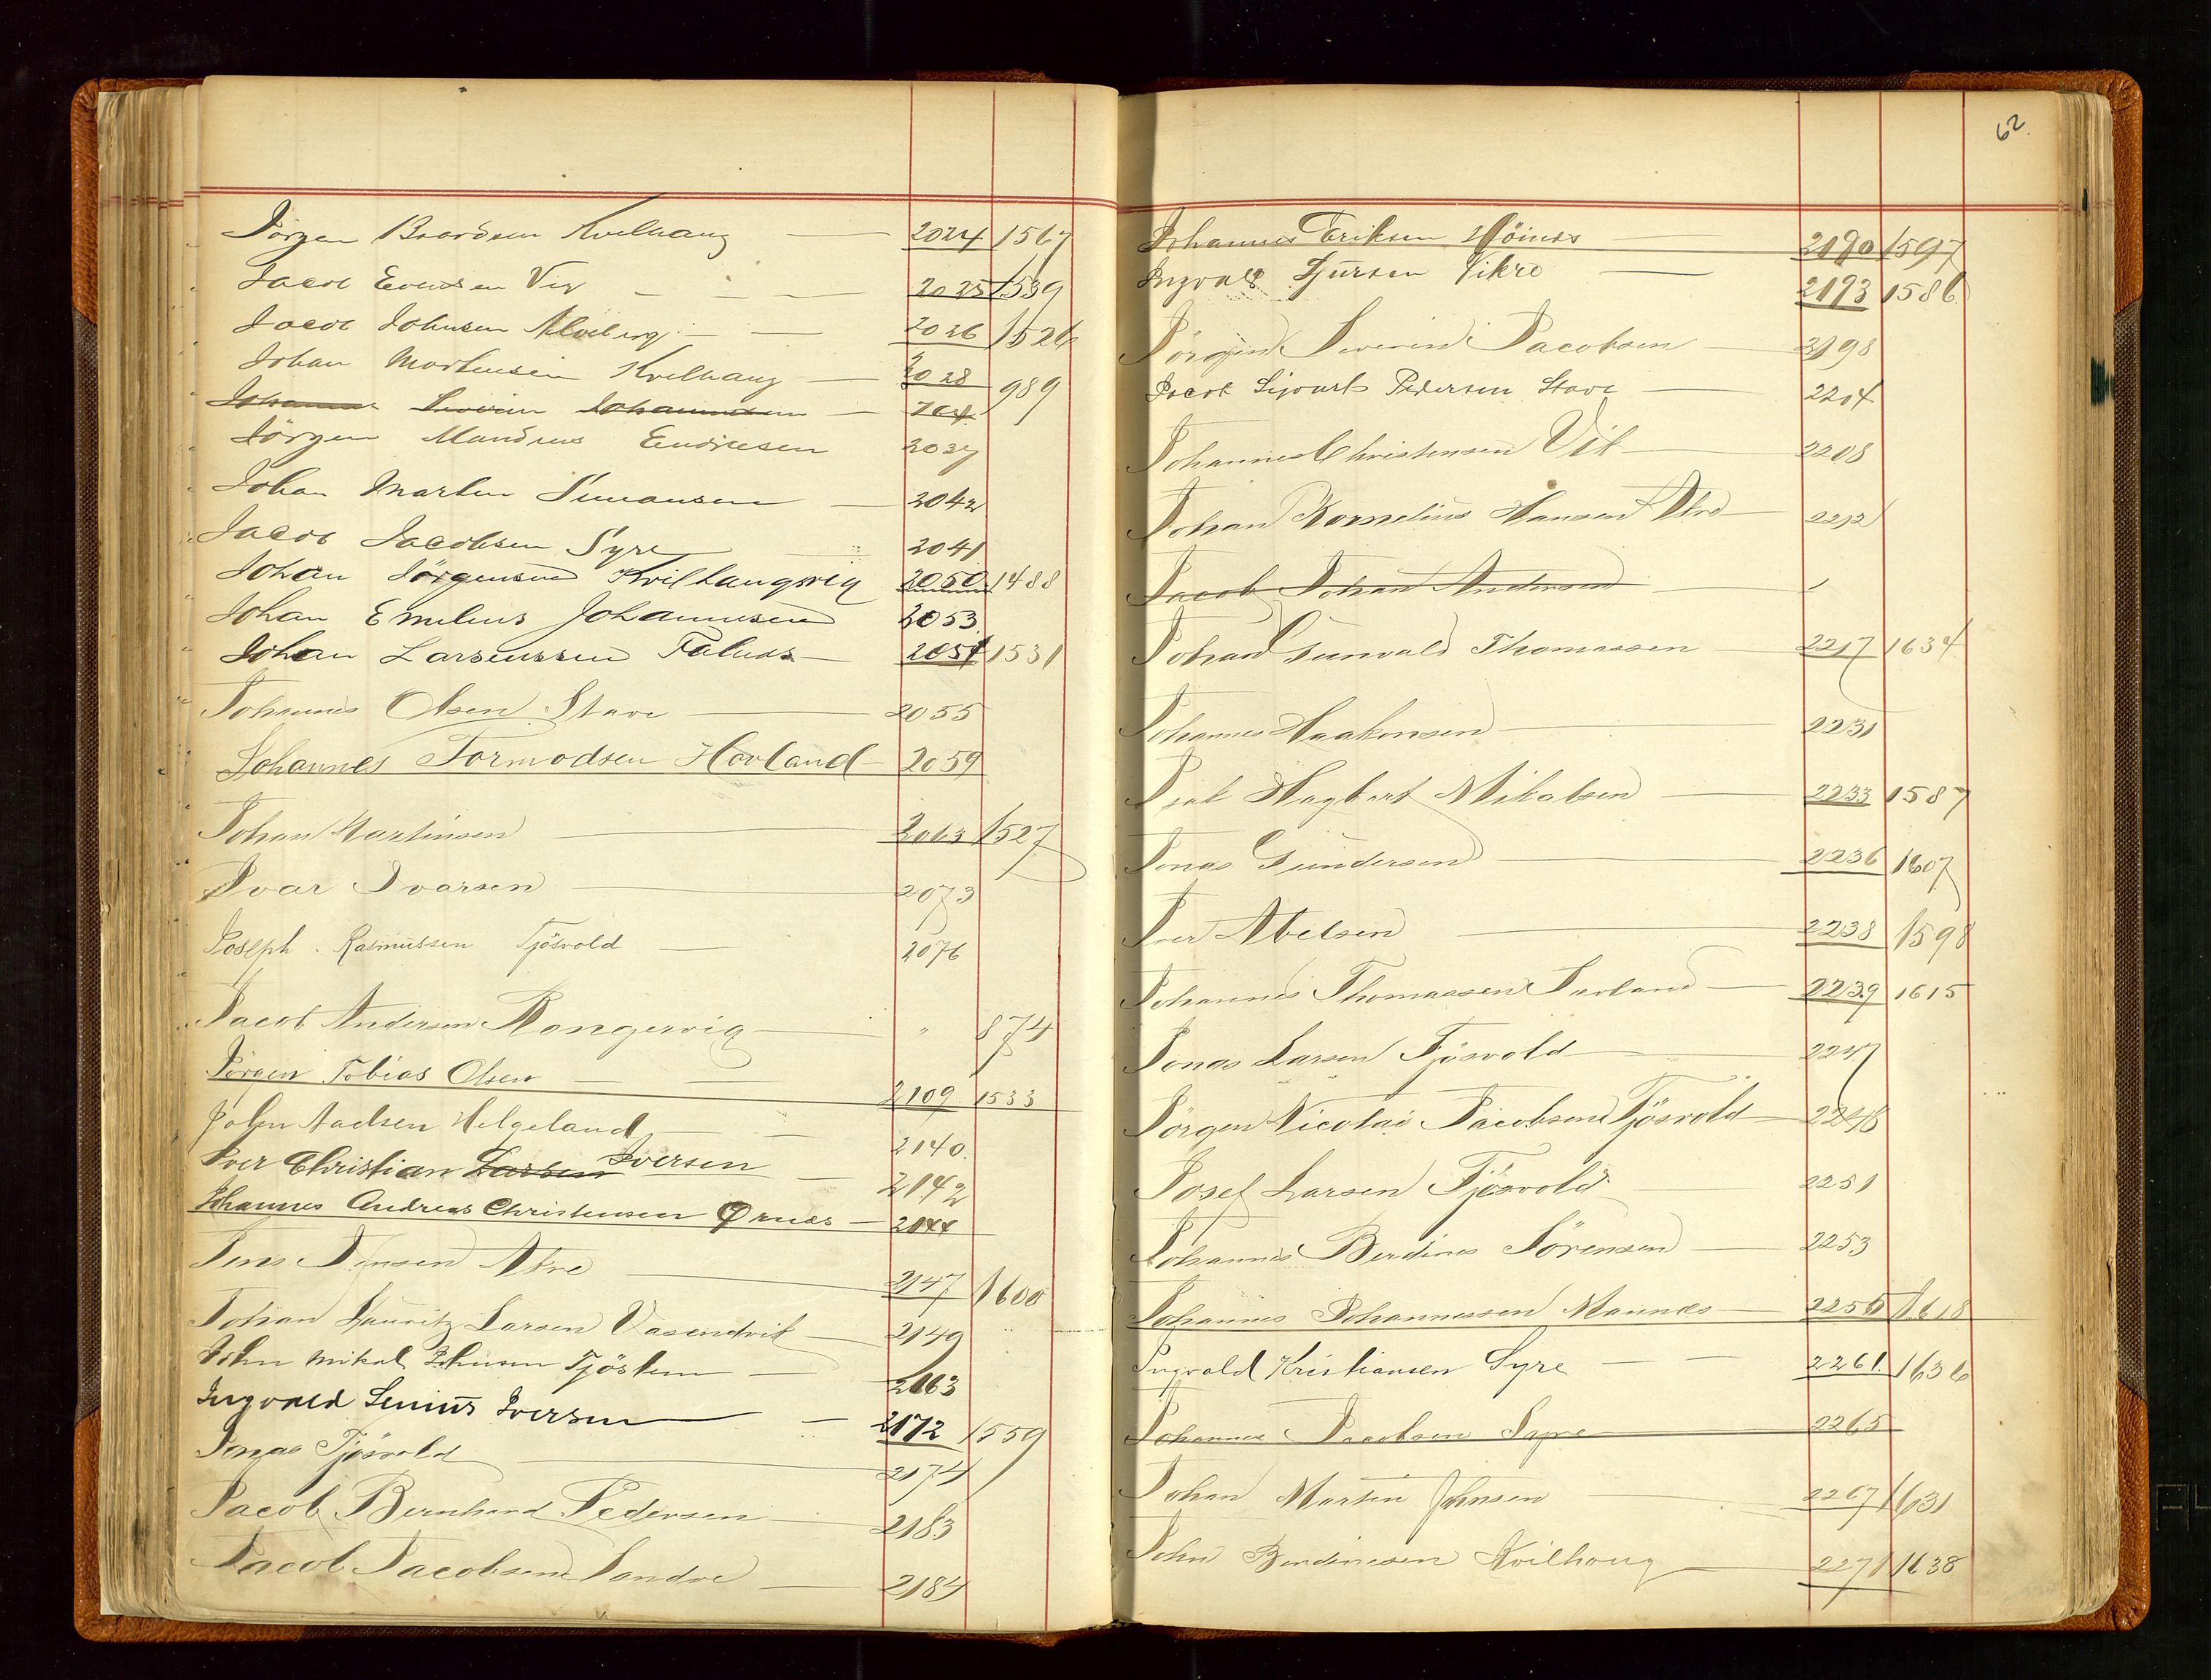 Jörgen Baardsen Kvilhaug — 2024 1567
Jacob Evensen Vig — 2025 1539
Jacob Johnsen — 2026 1526
Johan Mortensen Kvilhaug — 2028 989
Johannes Severin Johannessen — 764
Jörgen Mandrus Endresen 2037
Johan Martin Simonsen — 2042
Jacob Jacobsen Syre — 2041
Johan Jörgensen Kvilhaugsvig 2050 1488
Johan Emelius Johannesen 2053
Johan Larsenssen Falnes — 2054 1531
Johannes Olsen Stave — 2055
Johannes Tormodsen Hovland — 2059
Johan Martinsen — 2063 1527
Ivar Ivarsen — 2073
Joseph Rasmussen Tjösvold — 2076
Jacob Andersen Kongervig — " 874
Jörgen Tobias Olsen — 2109 1533
John Aadsen Helgeland — 2140
Iver Christian Larsen Iversen — 2142
Johannes Andreas Christensen Ørnes — 2144
Jens Jensen Akre — 2147 1600
Johan Lauritz Larsen Vasendvik — 2149
John Mikal Johnsen Tjöstem — 2163
Ingvald Senius Iversen — 2172 1559
Jonas Tjösvold — 2174
Jacob Bernhard Pedersen — 2183
Jacob Jacobsen Sandve — 2184
62
Johannes Eriksen Höines — 2190 1597
Ingvald Sjursen Vikre — 2193 1586
Jörgen Severin Jacobsen — 2198
Jacob Sigvart Pedersen Stave — 2204
Johannes Christensen Vik — 2208
Johan Kornelius Hansen Akre — 2212
Jacob Johan Andersen —
Johan Gunvald Thomassen — 2217 1634
Johannes Haakonsen — 2231
Isak Hagbart Mikalsen — 2233 1587
Jonas Gundersen — 2236 1607
Iver Abelsen — 2238 1598
Johannes Thomassen Sævland — 2239 1615
Jonas Larsen Tjösvold — 2247
Jörgen Nicolai Jacobsen Tjösvold — 2248
Josef Larsen Tjösvold — 2251
Johannes Berdines Sörensen — 2253
Johannes Johannessen Mannes — 2256 1618
Ingvald Kristiansen Syre — 2261 1636
Johannes Jacobsen Syre — 2265
Johan Martin Johnsen — 2267 1631
John Berdinesen Kvilhoug — 2271 1638